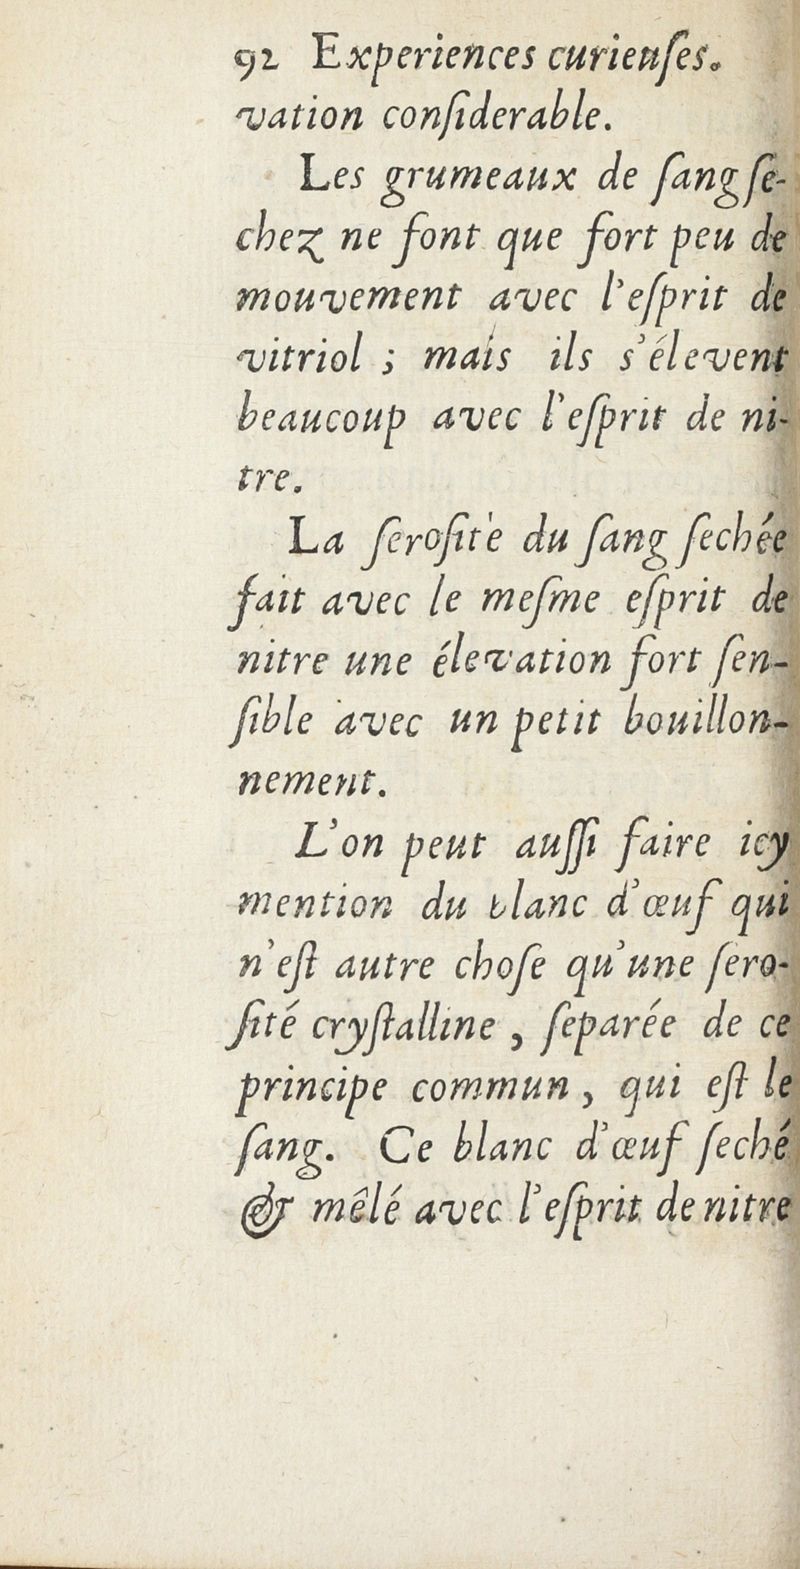 92 Experiences curieuſes.
vation conſiderable.
Les grumeaux de ſang ſe-
chez ne font que fort peu de
mouvement avec l'eſprit de
vitriol ; mais ils s'élevent
beaucoup avec l'eſprit de ni-
tre.
La ſeroſité du ſang ſechée
fait avec le meſme eſprit de
nitre une élevation fort ſen-
ſible avec un petit bouillon-
nement.
L'on peut auſſi faire icy
mention du blanc d'œuf qui
n'eſt autre choſe qu'une ſero-
ſité cryſtalline , ſeparée de ce
principe commun , qui eſt le
ſang. Ce blanc d'œuf ſeché
& mêlé avec l'eſprit de nitre